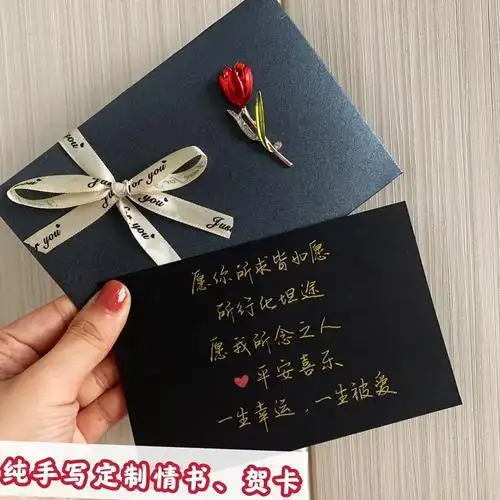 Just for you
Just
愿你所求皆如愿
所行化坦途
愿我所念之人
平安喜乐
一生幸运,一生被爱
纯手写定制情书、贺卡